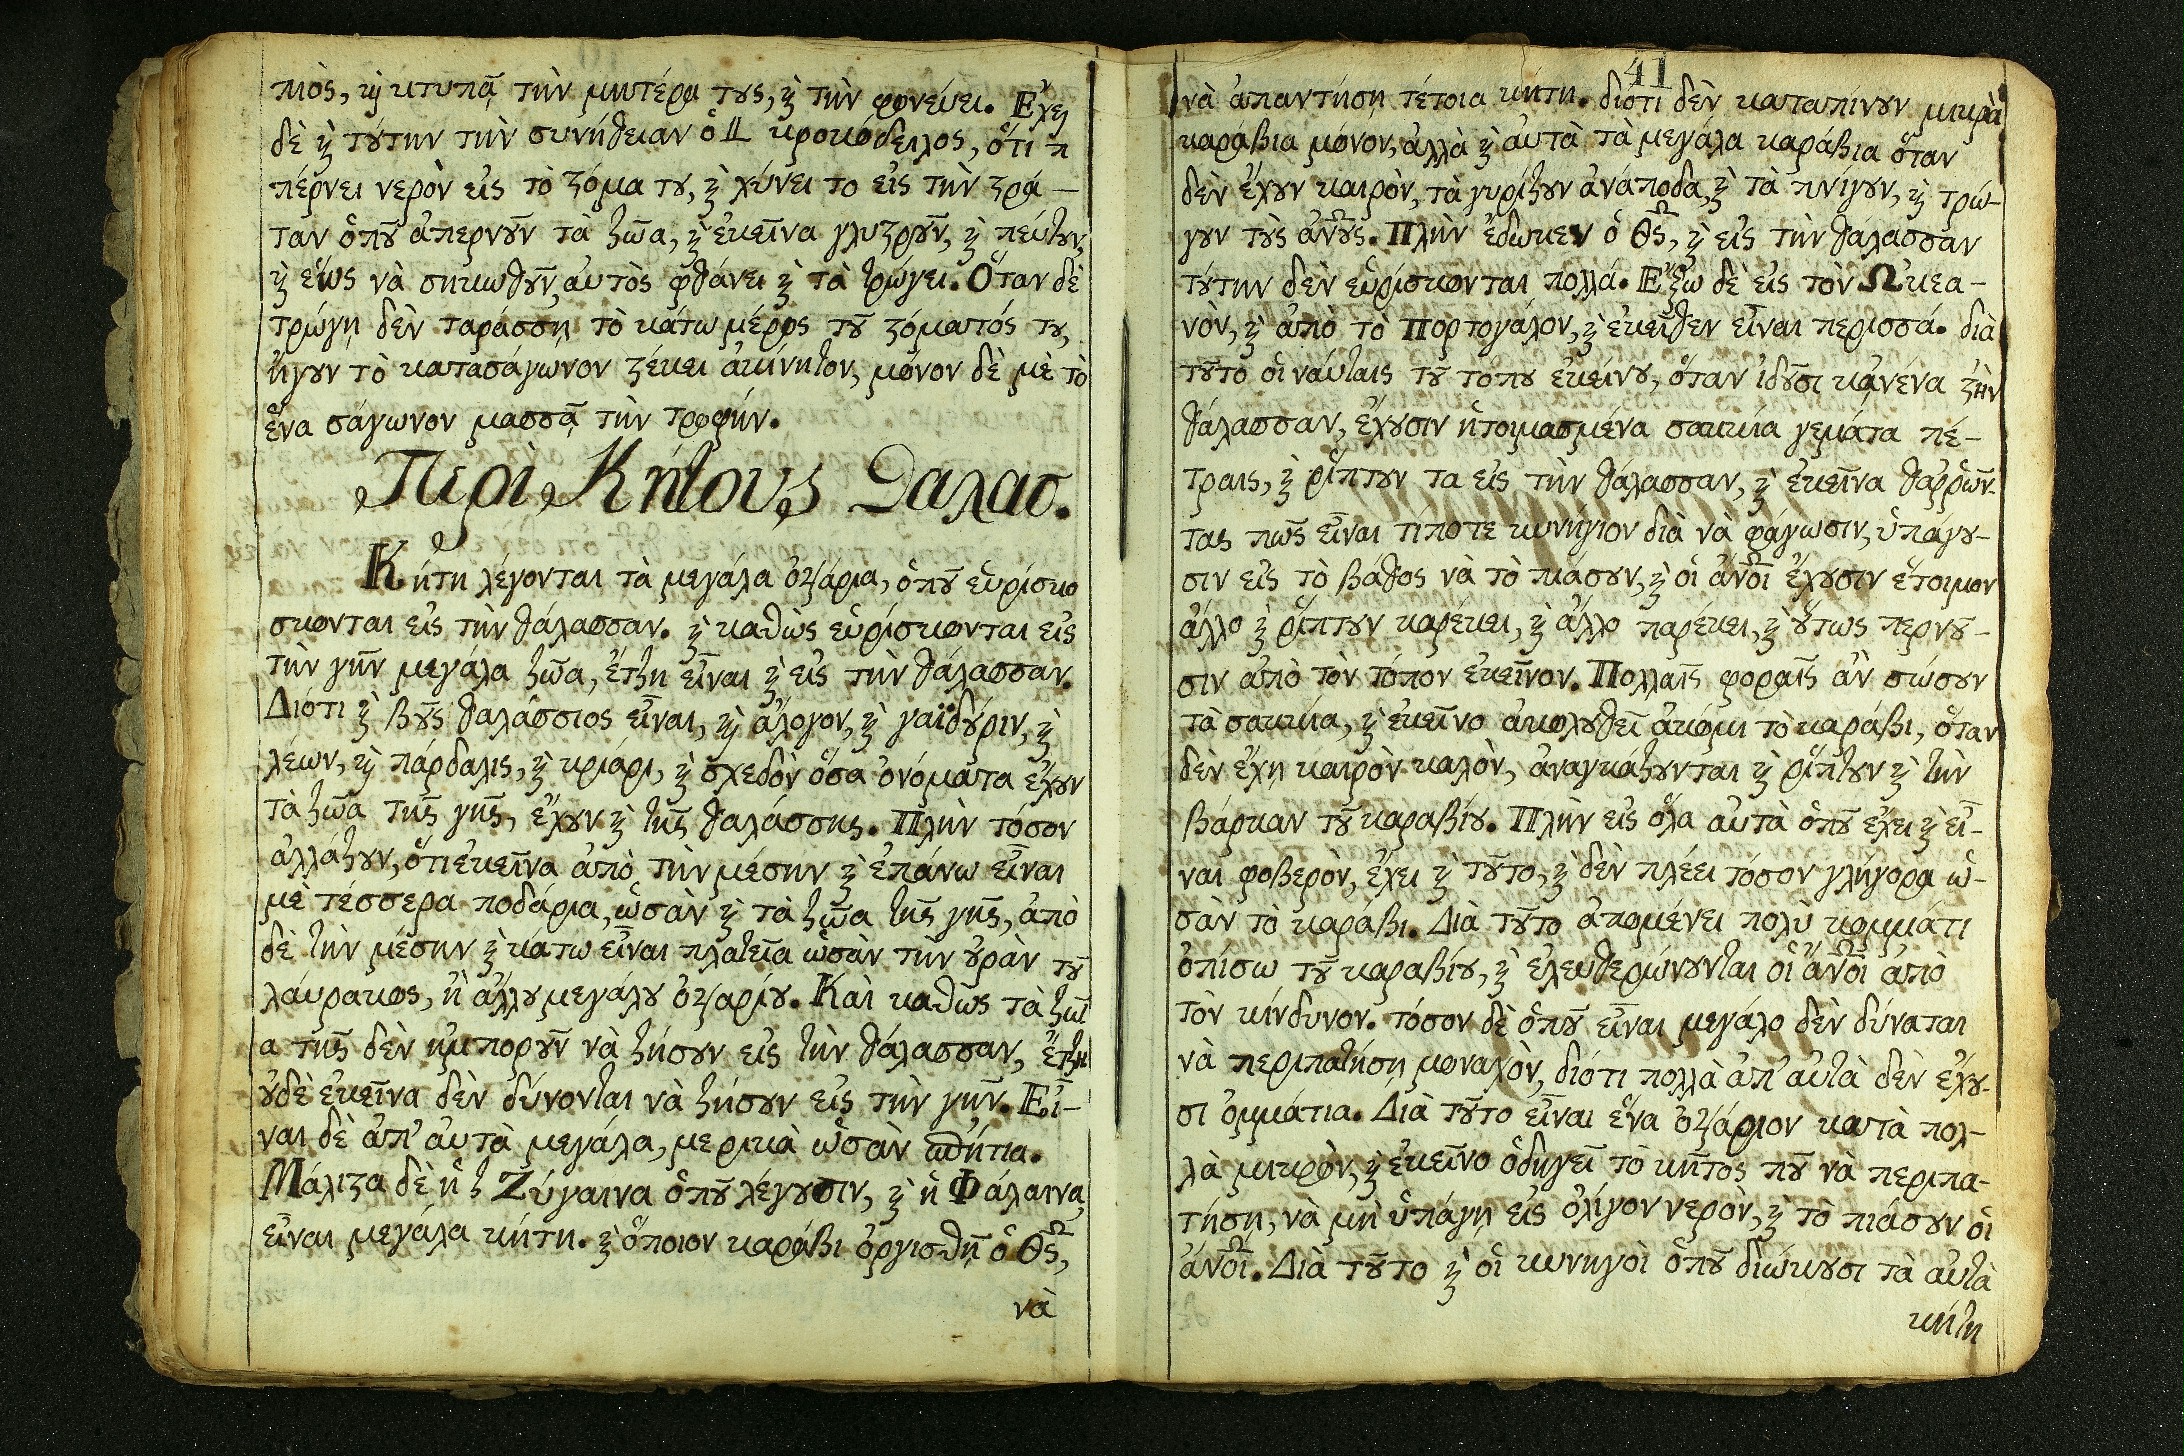 πιὸς, κὶ κτυπᾷ τὴν μητέρα τȣς, κὶ τὴν φονεύει. Ἔχει
δὲ κὶ τȣ́την τὴν συνήθειαν ὁ κροκόδειλος, ὅτι π
πέρνει νερὸν εἰς τὸ ϛόμα τȣ, κὶ χύνει το εἰς τὴν ϛρά-
ταν ὁπȣ͂ ἀπερνȣ͂ν τὰ ζῶα, κὶ ἐκεῖνα γλυϛρȣ͂ν, κὶ πεύτȣν,
κὶ ἕως νὰ σηκωθȣ͂ν, αὐτὸς φθάνει κὶ τὰ τρώγει. Ὅταν δὲ
τρώγῃ δὲν ταράσσῃ τὸ κάτω μέρος τȣ͂ ϛόματός τȣ,
ἤγȣν τὸ κατασάγωνον ϛέκει ἀκίνητον, μόνον δὲ μὲ τὸ
ἕνα σάγωνον μασσᾷ τὴν τροφήν.
Περὶ Κήτους Θαλασ.
Κήτη λέγονται τὰ μεγάλα ὀψάρια, ὁπȣ͂ εὑρίσκο
σκονται εἰς τὴν θάλασσαν. κὶ καθὼς εὑρίσκονται εἰς
τὴν γῆν μεγάλα ζῶα, ἔτζη εἶναι κὶ εἰς τὴν θάλασσαν.
Διότι κὶ βȣ͂ς θαλάσσιος εἶναι, κὶ ἄλογον, κὶ γαϊδȣ́ριν, κὶ
λέων, κὶ πάρδαλις, κὶ κριάρι, κὶ σχεδὸν ὅσα ὀνόματα ἔχȣν
τὰ ζῶα τῆς γῆς, ἔχȣν κὶ τῆς θαλάσσης. Πλὴν τόσον
ἀλλάζȣν, ὅτι ἐκεῖνα ἀπὸ τὴν μέσην κὶ ἐπάνω εἶναι
μὲ τέσσερα ποδάρια, ὡσὰν κὶ τὰ ζῶα τῆς γῆς, ἀπὸ
δὲ τὴν μέσην κὶ κάτω εἶναι πλατεῖα ὡσὰν τὴν ȣ̓ρὰν τȣ͂
λάυρακος, ἢ ἄλλȣ μεγάλȣ ὀψαρίȣ. Καὶ καθὼς τὰ ζῶ
α τῆς δὲν ἠμπορȣ͂ν νὰ ζήσȣν εἰς τὴν θάλασσαν, ἔτζη
ȣ̓δὲ ἐκεῖνα δὲν δύνονται νὰ ζήσȣν εἰς τὴν γῆν. Εἶ-
ναι δὲ ἀπ' αὐτὰ μεγάλα, μερικὰ ὡσὰν
Μάλιϛα δὲ ἡ Ζύγαινα ὁπȣ͂ λέγȣσιν, κὶ ἡ Φάλαινα,
εἶναι μεγάλα κήτη. κὶ ὅποιον καράβι ὀργισθῇ ὁ Θς,
νὰ
41
νὰ ἀπαντήσῃ τέτοια κήτη. διότι δὲν καταπίνȣν μικρὰ
καράβια μόνον, ἀλλὰ κὶ αὐτὰ τὰ μεγάλα καράβια ὅταν
δὲν ἔχȣν καιρὸν, τὰ γυρίζȣν ἀνάποδα, κὶ τὰ πνίγȣν, κὶ τρώ-
γȣν τȣ̀ς ἀνȣς. Πλὴν ἔδωκεν ὁ Θς, κὶ εἰς τὴν θάλασσαν
τȣ́την δὲν εὑρίσκονται πολλά. Ἔξω δὲ εἰς τὸν Ὠκεα-
νὸν, κὶ ἀπὸ τὸ Πορτογάλον, κὶ ἐκεῖθεν εἶναι περισσά. διὰ
τȣ͂το οἱ ναύταις τȣ͂ τόπȣ ἐκείνȣ, ὅταν ἰδȣ͂σι κᾀνένα ϛὴν
θάλασσαν, ἔχȣσιν ἡτοιμασμένα σακκία γεμάτα πέ-
τραις, κὶ ῥίπτȣν τα εἰς τὴν θάλασσαν, κὶ ἐκεῖνα θαῤῥῶν-
τας πῶς εἶναι τίποτε κυνήγιον διὰ νὰ φάγωσιν, ὑπάγȣ-
σιν εἰς τὸ βάθος νὰ τὸ πιάσȣν, κὶ οἱ ἀνοι ἔχȣσιν ἕτοιμον
ἄλλο κὶ ῥίπτȣν παρέκει, κὶ ἄλλο παρέκει, κὶ ȣ̔́τως περνȣ͂-
σιν ἀπὸ τὸν τόπον ἐκεῖνον. Πολλαῖς φοραῖς ἂν σώσȣν
τὰ σακκία, κὶ ἐκεῖνο ἀκολȣθεῖ ἀκόμι τὸ καράβι, ὅταν
δὲν ἔχῃ καιρὸν καλὸν, ἀναγκάζȣνται κὶ ῥίπτȣν κὶ τὴν
βάρκαν τȣ͂ καραβίȣ. Πλὴν εἰς ὅλα αὐτὰ ὁπȣ͂ ἔχει κὶ εἶ-
ναι φοβερὸν, ἔχει κὶ τȣ͂το, κὶ δὲν πλέει τόσον γλήγορα ὡ-
σὰν τὸ καράβι. Διὰ τȣ͂το ἀπομένει πολὺ κομμάτι
ὀπίσω τȣ͂ καραβίȣ, κὶ ἐλευθερώνȣνται οἱ ἀνοι ἀπὸ
τὸν κίνδυνον. τόσον δὲ ὁπȣ͂ εἶναι μεγάλο δὲν δύναται
νὰ περιπατήσῃ μοναχὸν, διότι πολλὰ ἀπ' αὐτὰ δὲν ἔχȣ-
σι ὀμμάτια. Διὰ τȣ͂το εἶναι ἕνα ὀψάριον κατὰ πολ-
λὰ μικρὸν, κὶ ἐκεῖνο ὁδηγεῖ τὸ κῆτος πȣ͂ νὰ περιπα-
τήσῃ, νὰ μὴ ὑπάγῃ εἰς ὀλίγον νερὸν, κὶ τὸ πιάσȣν οἱ
ἀνοι. Διὰ τȣ͂το κὶ οἱ κυνηγοὶ ὁπȣ͂ διώκȣσι τὰ αὐτὰ
κήτη